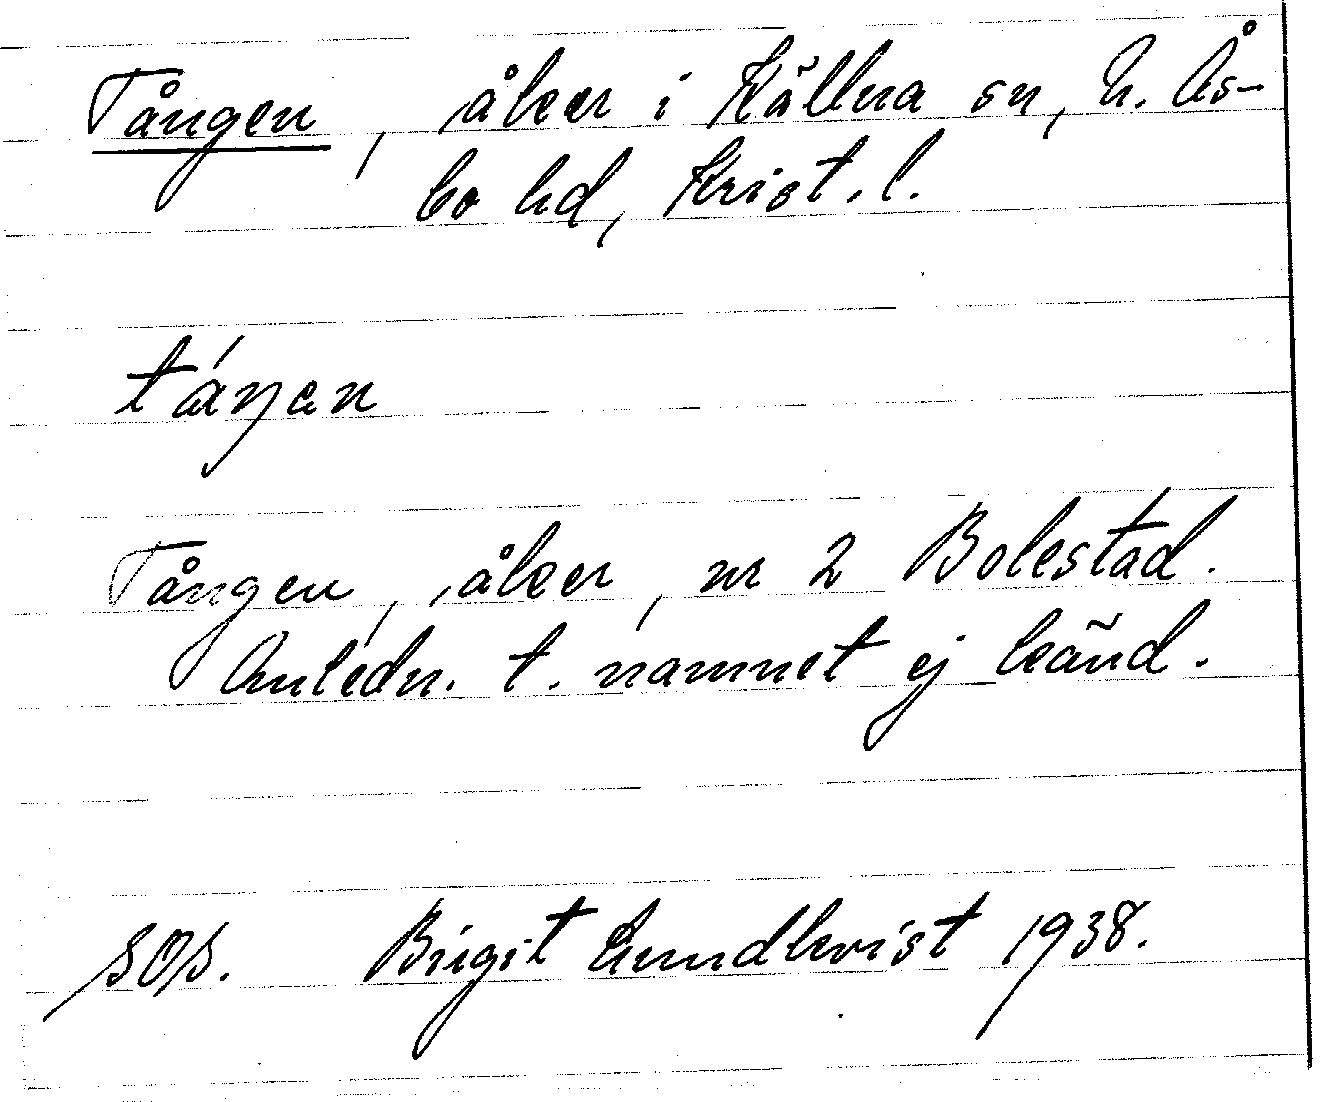 Tången, åker i Källna sn, N. Ås-
bo hd, Krist. l.
táŋen
Tången, åker, nr 2 Bolestad.
Anledn. t. namnet ej känd.
SOS. Birgit Lundkvist 1938.